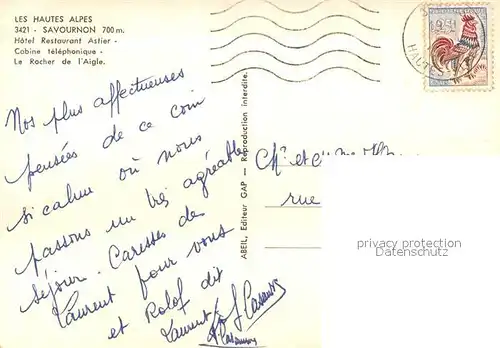 LES HAUTES ALPES
3421 - SAVOURNON 700 m.
Hôtel Restaurant Astier -
Cabine téléphonique -
Le Rocher de l'Aigle.
Nos plus affectueuses
pensées de ce coin
si calme où nous
passons un très agréable
séjour. Caresses de
Laurent pour vous
et Rolof dit
Laurent
ABEIL, Editeur GAP — Reproduction interdite.
HAUTES
rue
privacy protection
AnsichtskartenVersand.com